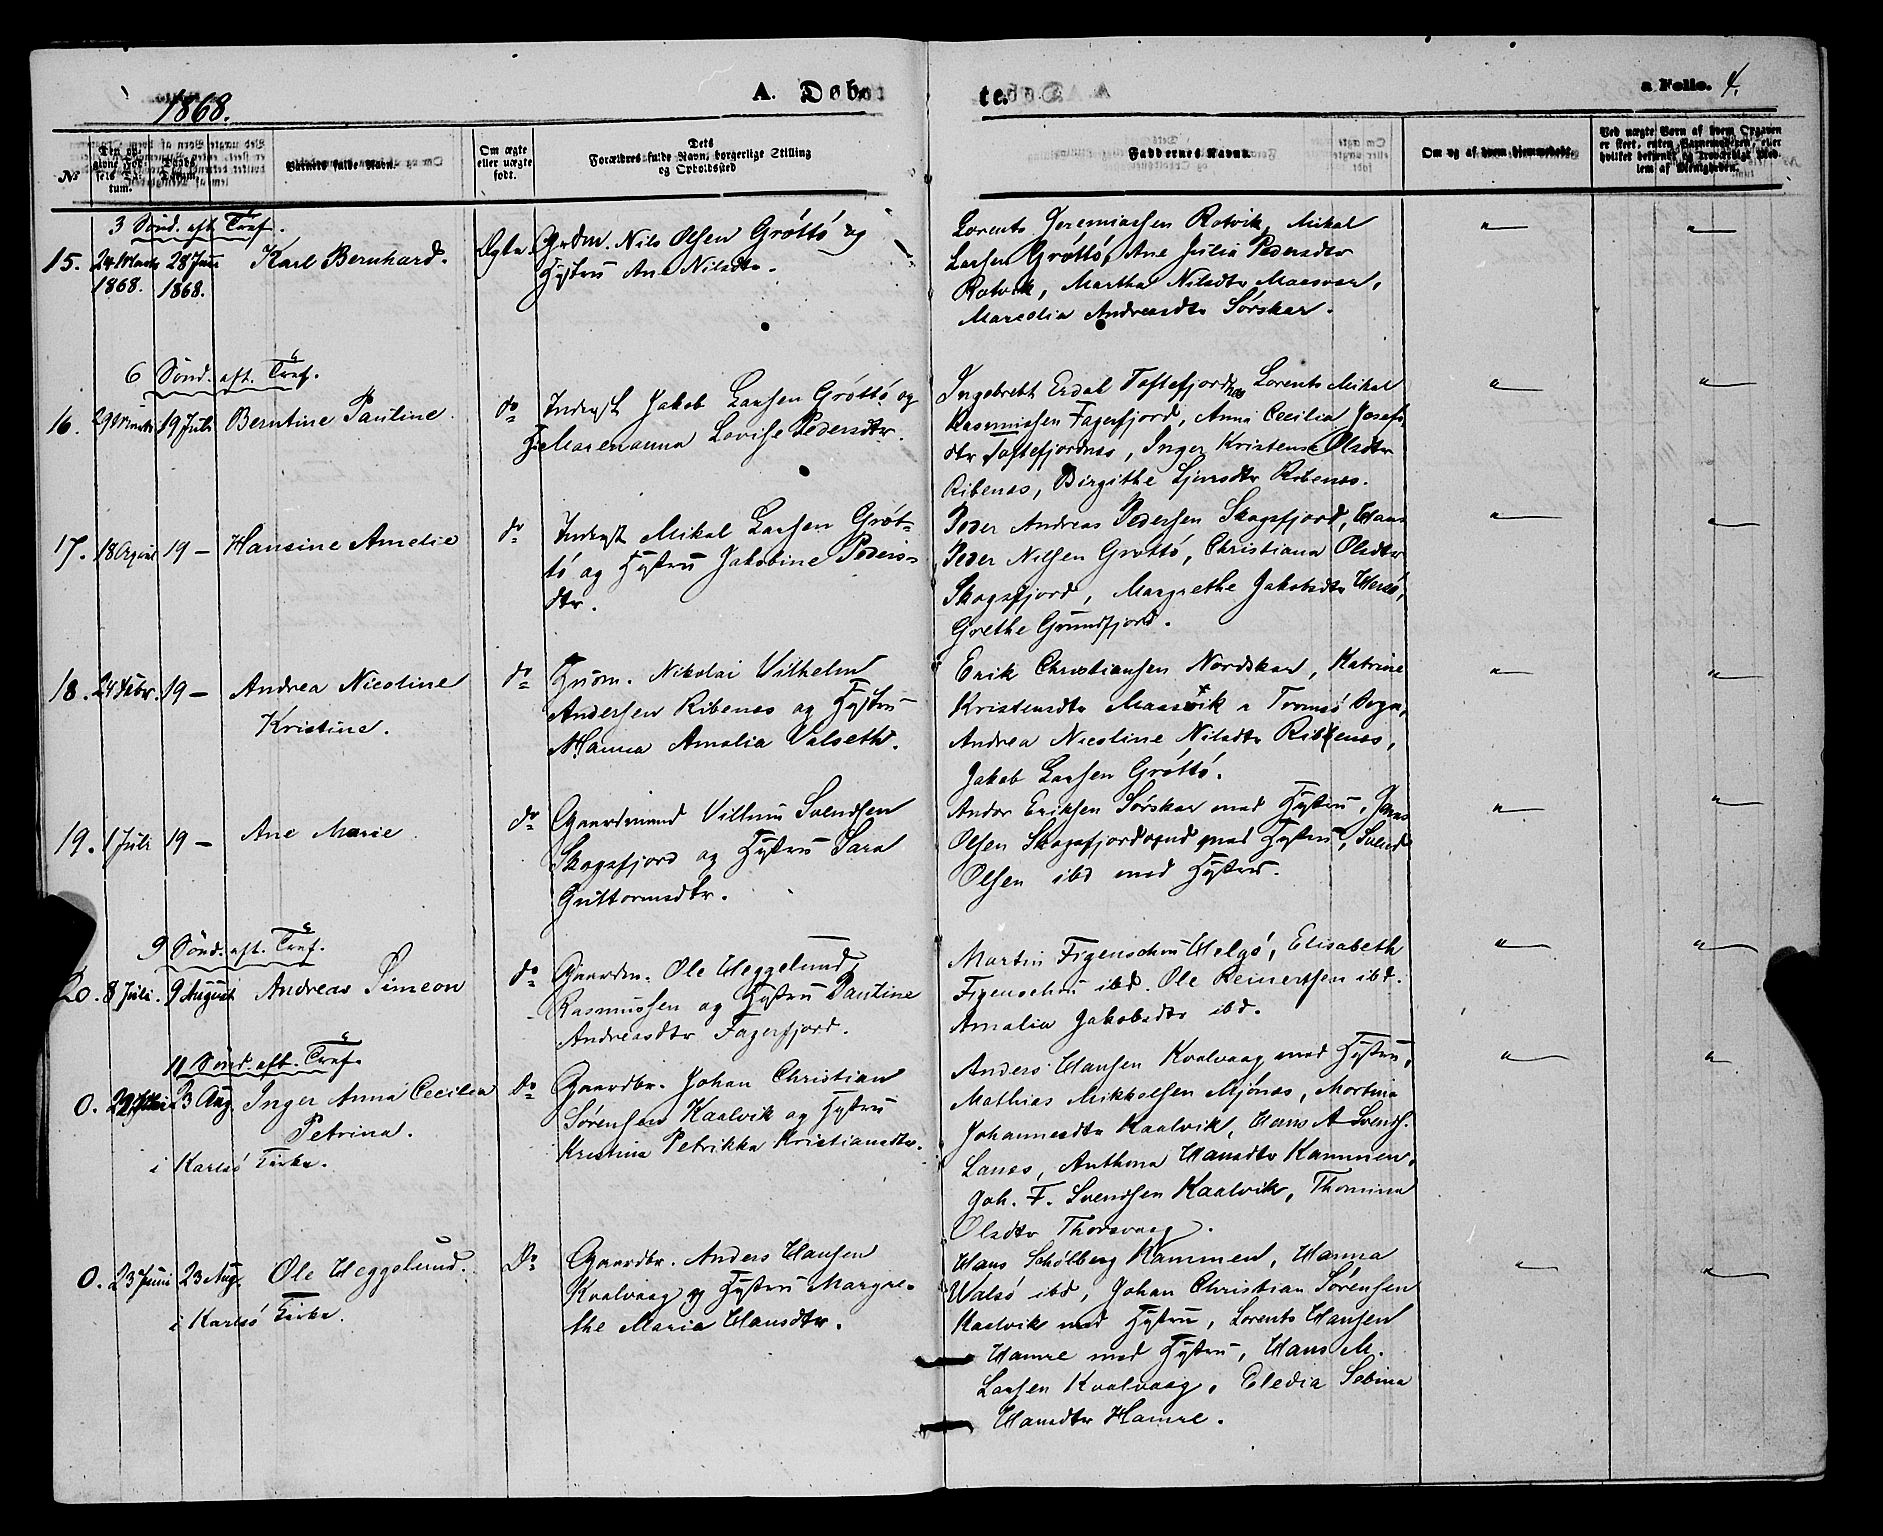 1868.
A. Døbte.
a Folio. 4.
No
Den opgivne Fødsels Datum.
Daabs Datum.
Barnets fulde Navn.
Om ægte eller uægte født.
Dets Forældres fulde Navn, borgerlige Stilling og Opholdssted
Faddernes Navne.
Om og af hvem hjemmedøbt.
Ved uægte Børn af hvem Opgaven er skeet, enten Barnemoderen, eller hvilket bekjendt og troværdigt Medlem af Menigheden.
3 Sønd. eft. Tref.
15. 24 Marts 1868. 28 Juni 1868. Karl Bernhard. Ægte. Grdm. Nils Olsen Grøttø og
Hystru Ane Nilsdtr.
Lorents Jeremiassen Rotvik, Mikal
Larsen Grøttø, Ane Julia Pedersdtr
Rotvik, Martha Nilsdtr Maasvær,
Maredia Andreasdtr Sørskar.
6 Sønd. eft. Tref.
16. 29 Marts 19 Juli Berntine Pauline. do Inderst Jakob Larsen Grøttø og
H. Marenanna Lovise Pedersdtr.
Ingebrekt Erdal Toftefjordnes, Lorents Mikal
Rasmussen Fagerfjord, Anna Cecilia Josefs
dtr Toftefjordnes, Inger Kristense Olsdtr
Ribenes, Birgithe Ejersdtr Ribenes.
17. 18 April 19 – Hansine Amelie do Inderst Mikal Larsen Grøt-
tø og Hystru Jakobine Peders-
dtr.
Peder Andreas Pedersen Skogsfjord, Hans
Peder Nilsen Grøttø, Christiana Olsdtr
Skogsfjord, Margrethe Jakobsdtr Hersø,
Grethe Grundfjord.
18. 24 Febr. 19 – Andrea Nicoline
Kristine.
do Husm. Nikolai Vilhelm
Andersen Ribenes og Hystru
Hanna Amalia Valseth.
Erik Christiansen Nordskar, Katrine
Kristensdtr Maasvik i Tromsø Sogn,
Andrea Nicoline Nilsdtr Ribenes,
Jakob Larsen Grøttø.
19. 1 Juli 19 – Ane Marie. do Gaardmand Villum Svendsen
Skogsfjord og Hystru Sara
Guttormsdtr.
Andor Eriksen Sørskar med Hystru, Jens
Olsen Skogsfjordvand med Hystru, Svend
Olsen ibd med Hystru.
9 Sønd. eft. Tref.
20. 8 Juli. 9 August Andreas Simeon do Gaardm. Ole Heggelund
Rasmussen og Hystru Pauline
Andreasdtr Fagerfjord.
Martin Figenschou Helgø, Elisabeth
Figenschou ibd. Ole Reinertsen ibd.
Amalia Jakobsdtr ibd.
11 Sønd. eft. Tref.
0. 23 Aug. Inger Anna Cecilia
Petrina.
i Karlsø Kirke.
Do Gaardbr. Johan Christian
Sørensen Kaalvik og Hystru
Kristina Petrikka Kristiansdtr.
Anders Hansen Kvalvaag med Hystru,
Mathias Mikkelsen Mjønes, Martina
Johannesdtr Kaalvik, Hans A Svends.
Lanes, Anthona Hansdtr Kammen,
Joh. F. Svendsen Kaalvik, Thomina
Olsdtr Thorsvaag.
0. 23 Juni 23 Aug. Ole Heggelund.
i Karlsø Kirke.
Do Gaardbr. Anders Hansen
Kvalvaag og Hystru Margre-
the Maria Hansdtr.
Hans Schølberg Kammen, Hanna
Walsø ibd, Johan Christian Sørensen
Kaalvik med Hystru, Lorents Hansen
Hamre med Hystru, Hans M.
Larsen Kvalvaag, Eledia Sebina
Hansdtr Hamre.